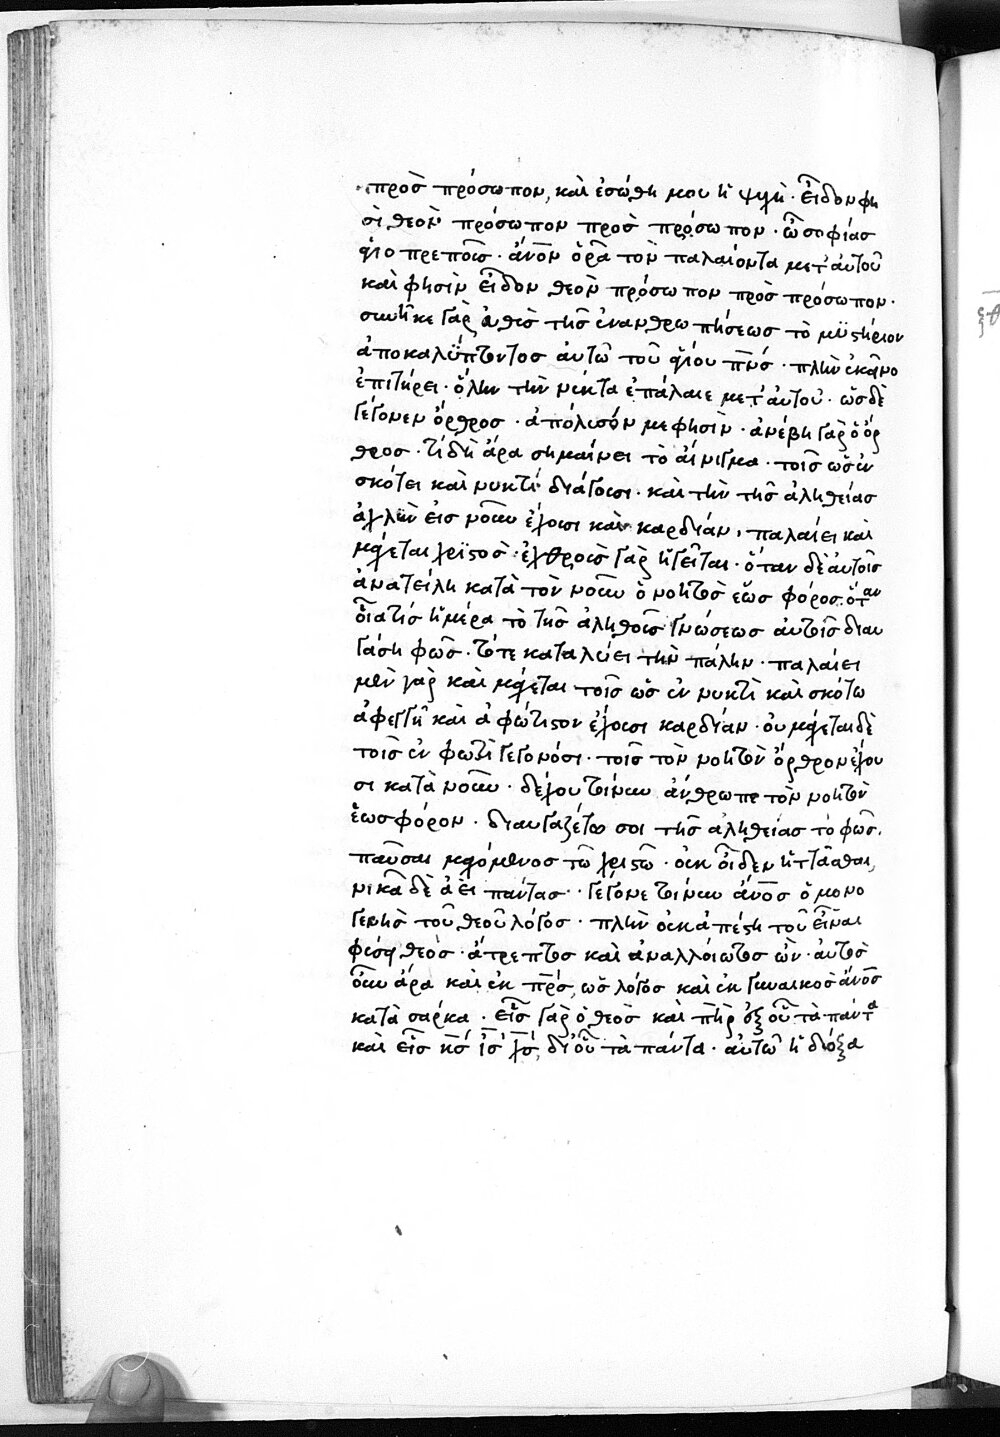 πρὸς πρόσωπον, καὶ ἐσώθη μου ἡ ψυχὴ · εἶδον φη
σὶ θεὸν πρόσωπον πρὸς πρόσωπον · ὢ σοφίας
θεοπρεποῦς · ἄνον ὁρᾶ τὸν παλαίοντα μετ' αὐτοῦ
καὶ φησὶν εἶδον θεὸν πρόσωπον πρὸς πρόσωπον ·
συνῆκε γὰρ εὐθὺς τῆς ἐνανθρωπήσεως τὸ μυστήριον
ἀποκαλύπτοντος αὐτῶ τοῦ ἁγίου πνς · πλὴν ἐκεῖνο
ἐπιτήρει · ὅλην τὴν νύκτα ἐπάλαιε μετ' αὐτοῦ · ὡς δὲ
γέγονεν ὄρθρος · ἀπόλυσόν με φησὶν · ἀνέβη γὰρ ὁ ὄρ
θρος · τί δὴ ἄρα σημαίνει τὸ αἴνιγμα · τοῖς ὡς ἐν
σκότει καὶ νυκτὶ διάγουσι · καὶ τὴν τῆς ἀληθείας
ἀχλὺν εἰς νοῦν ἔχουσι καὶ καρδίαν, παλαίει καὶ
μάχεται χριστὸς · ἐχθροὺς γὰρ ἡγεῖται · ὅταν δὲ αὐτοῖς
ἀνατείλη κατὰ τὸν νοῦν ὁ νοητὸς ἑωσφόρος · ὅταν
οἷά τις ἡμέρα τὸ τῆς ἀληθοῦς γνώσεως αὐτοῖς διαυ
γάση φῶς · τότε καταλύει τὴν πάλην · παλαίει
μὲν γὰρ καὶ μάχεται τοῖς ὡς ἐν νυκτὶ καὶ σκότω
ἀφεγγῆ καὶ ἀφώτιστον ἔχουσι καρδίαν · οὐ μάχεται δὲ
τοῖς ἐν φωτὶ γεγονόσι · τοῖς τὸν νοητὸν ὄρθρον ἔχου
σι κατὰ νοῦν · δέχου τοίνυν ἄνθρωπε τὸν νοητὸν
ἑωσφόρον · διαυγαζέτω σοι τῆς ἀληθείας τὸ φῶς,
παῦσαι μαχόμενος τῶ χριστῶ · οὐκ οἶδεν ἡττᾶσθαι,
νικᾶ δὲ ἀεὶ πάντας · γέγονε τοίνυν ἄνος ὁ μονο
γενὴς τοῦ θεοῦ λόγος · πλὴν οὐκ ἀπέστη τοῦ εἶναι
φύσει θεός · ἄτρεπτος καὶ ἀναλλοίωτος ὢν · αὐτὸς
οὖν ἄρα καὶ ἐκ πρς, ὡς λόγος καὶ ἐκ γυναικὸς ἄνος
κατὰ σάρκα · εἷς γὰρ ὁ θεὸς καὶ πηρ ἐξ οὗ τὰ πάντα
καὶ εἷς κς ις χς, δι' οὗ τὰ πάντα · αὐτῶ ἡ δόξα